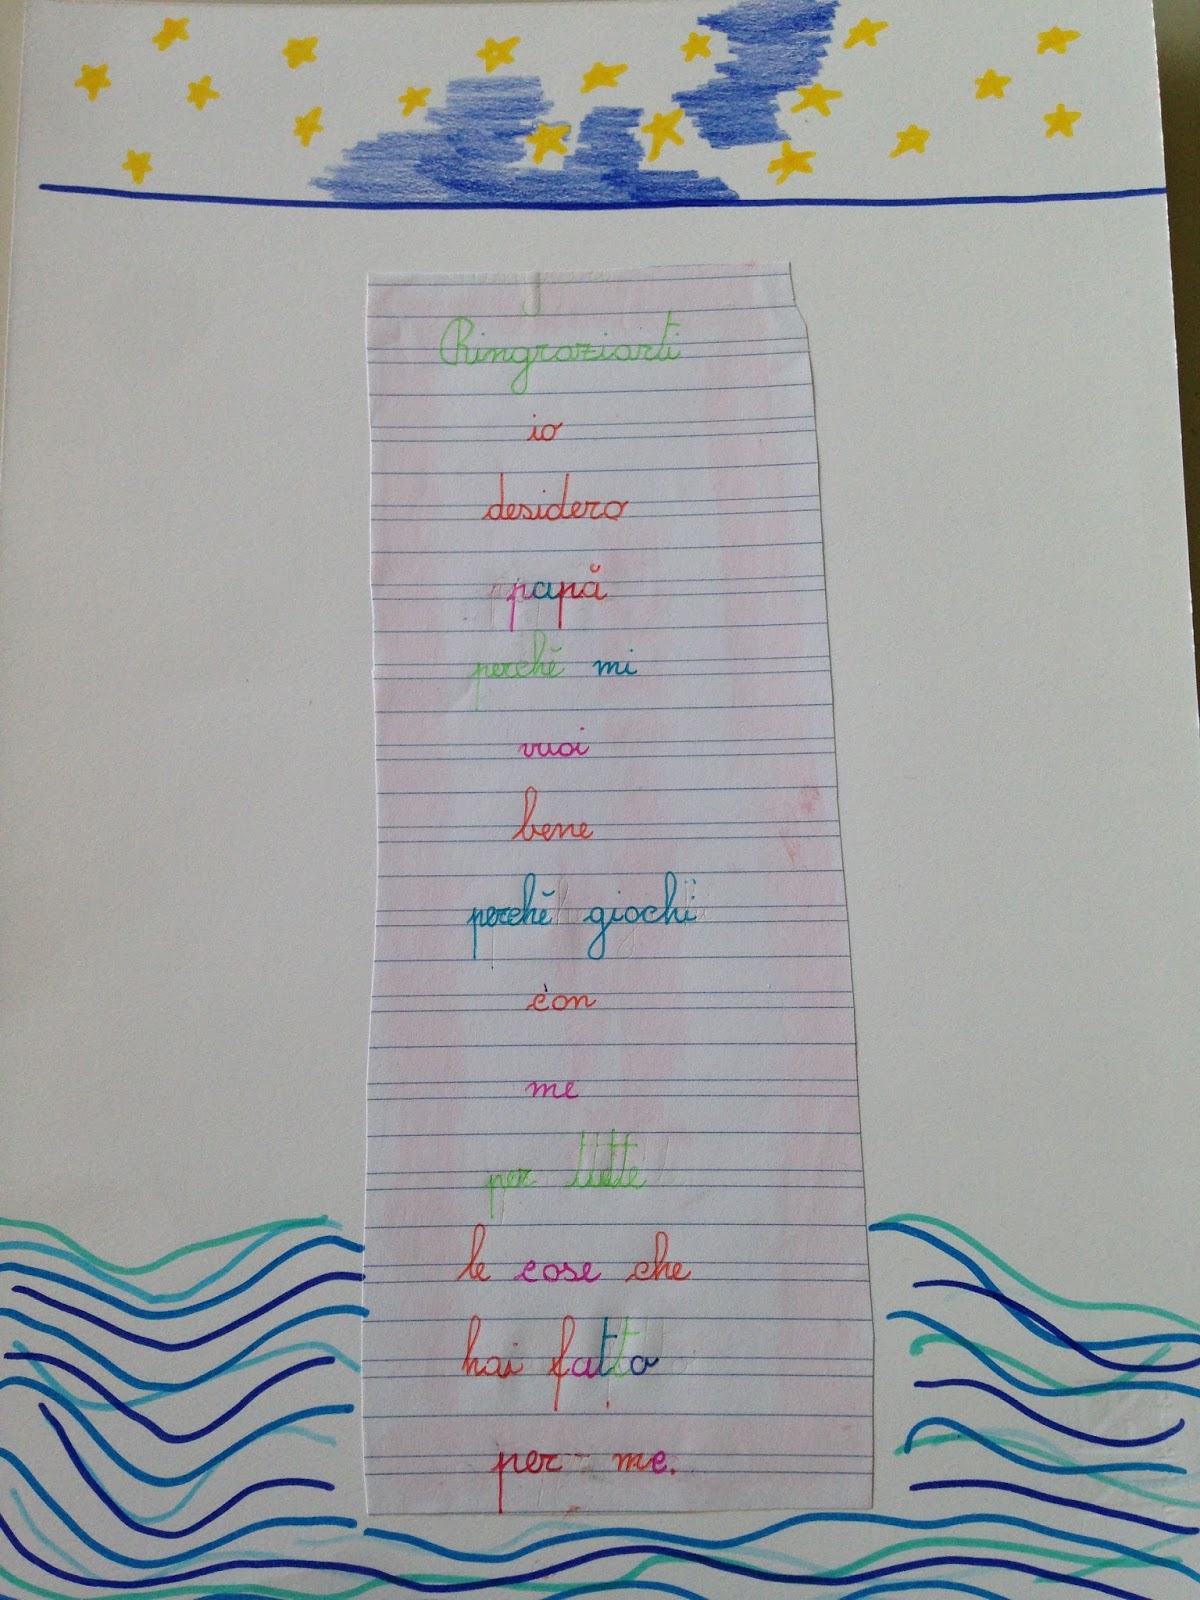 Ringraziarti
io
desidero
papà
perchè mi
vuoi
bene
perchè giochi
con
me
per tutte
le cose che
hai fatto
per me.